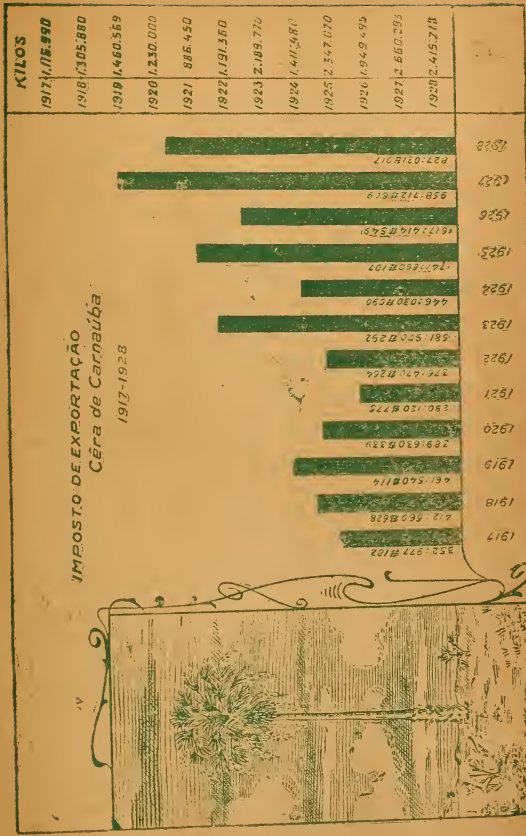 IMPOSTO DE EXPORTAÇÃO
Cêra de Carnaúba
1917-1928
KILOS
1918 1.305.880
1919 1.460.569
1920 1.230.000
1921 886.450
1922 1.191.360
1923 2.189.770
1925 2.347.070
1926 1.949.495
1927 2.660.293
1928 2.415.213
352:977$182
412:560$628
461:540$114
389:630$339
280:120$775
376:470$264
581:970$292
446:030$090
958:712$609
827:031$017
1917
1918
1919
1920
1921
1922
1923
1924
1925
1926
1927
1928